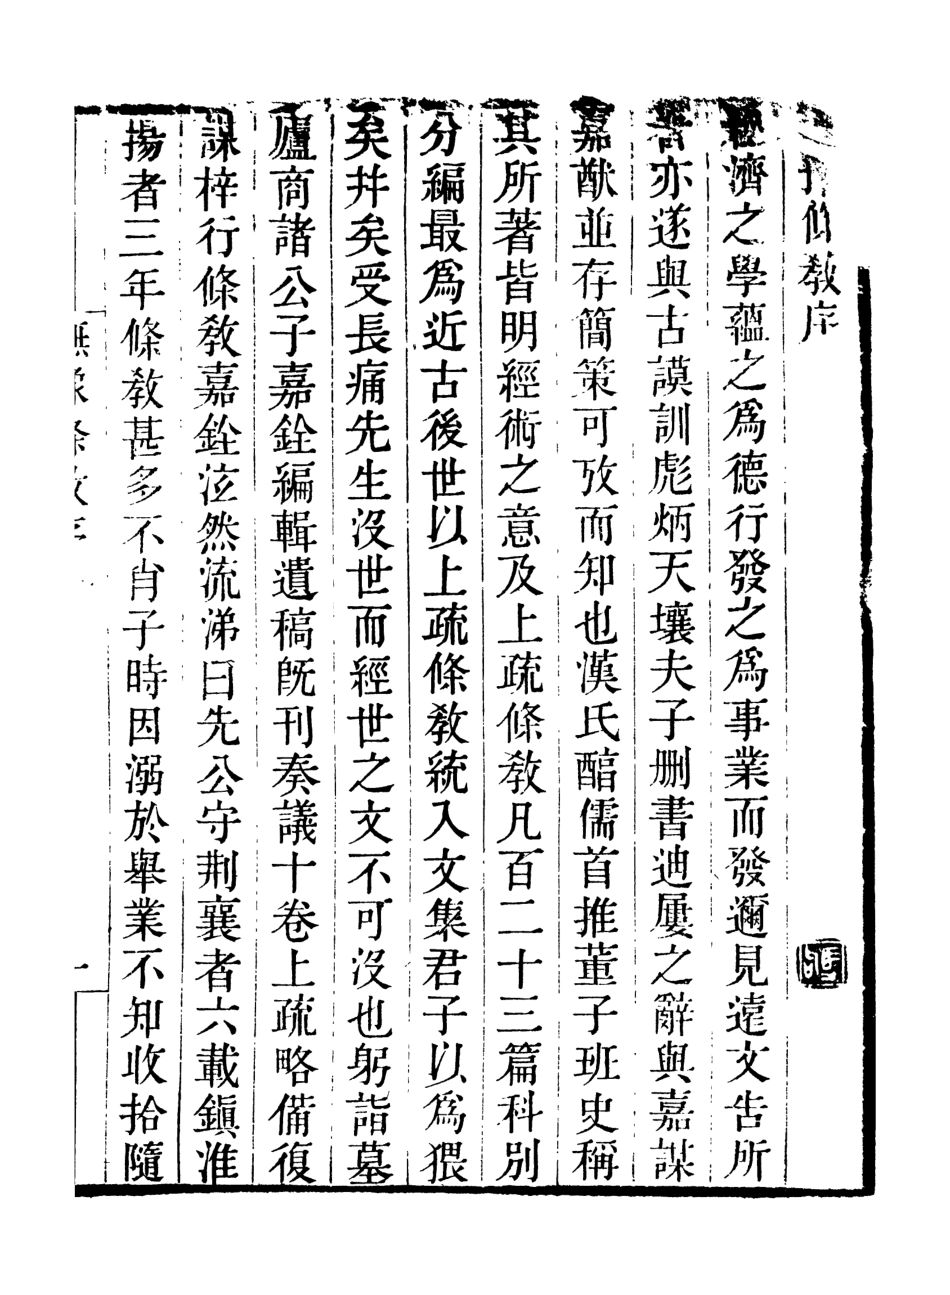 教序
濟之學蘊之爲德行發之爲事業而發邇見遠文告所
亦遂與古謨訓彪炳天壤夫子刪書迪屢之辭與嘉謀
嘉猷並存簡策可攷而知也漢氏醕儒首推董子班史稱
其所著皆明經術之意及上疏條敎凡百二十三篇科別
分編最爲近古後世以上疏條敎統入文集君子以爲猥
矣幷矣受長痛先生沒世而經世之文不可沒也躬詣墓
廬商諸公子嘉銓編輯遺稿旣刊奏議十卷上疏略備復
謀梓行條敎嘉銓泫然流涕曰先公守荆襄者六載鎭淮
揚者三年條敎甚多不肖子時因溺於舉業不知收拾隨
一